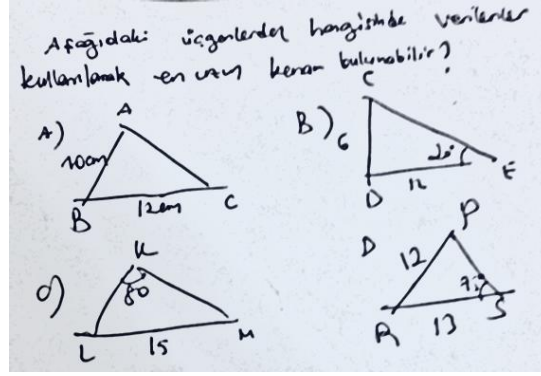 Aşağıdaki üçgenlerden hangisinde verilenler
kullanılarak en uzun kenarı bulunabilir?
A)
A
10cm
B
12cm
C
B)
C
6
D
12
E
C)
K
80
L
15
M
D
P
12
R
13
S